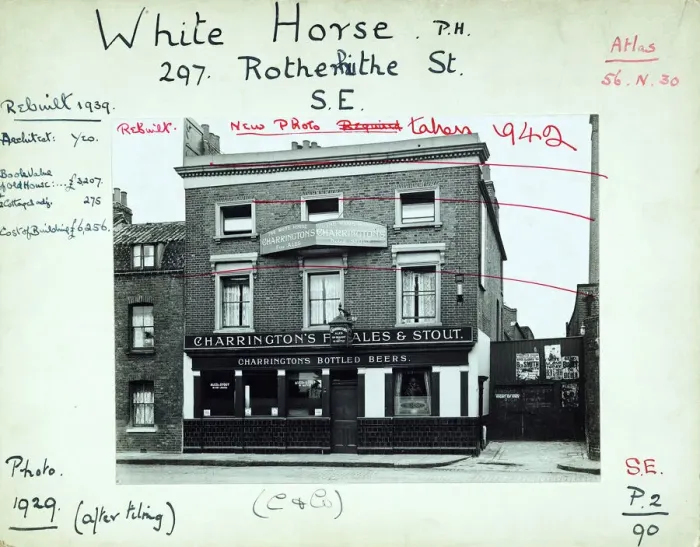 White Horse. P.H.
297. Rotherhithe St.
S.E.
Atlas
56. N. 30
Rebuilt 1939.
Architect: Yeo.
Book Value
of Old House:... £3,207.
2 Cottages adj. 275
Cost of Building £6,256.
Rebuilt. New Photo Required taken 1942
CHARRINGTON'S CHARRINGTON'S
CHARRINGTON'S F ALES & STOUT.
CHARRINGTON'S BOTTLED BEERS.
Photo.
1929. (after tiling)
(C & Co)
S.E.
P. 2
90